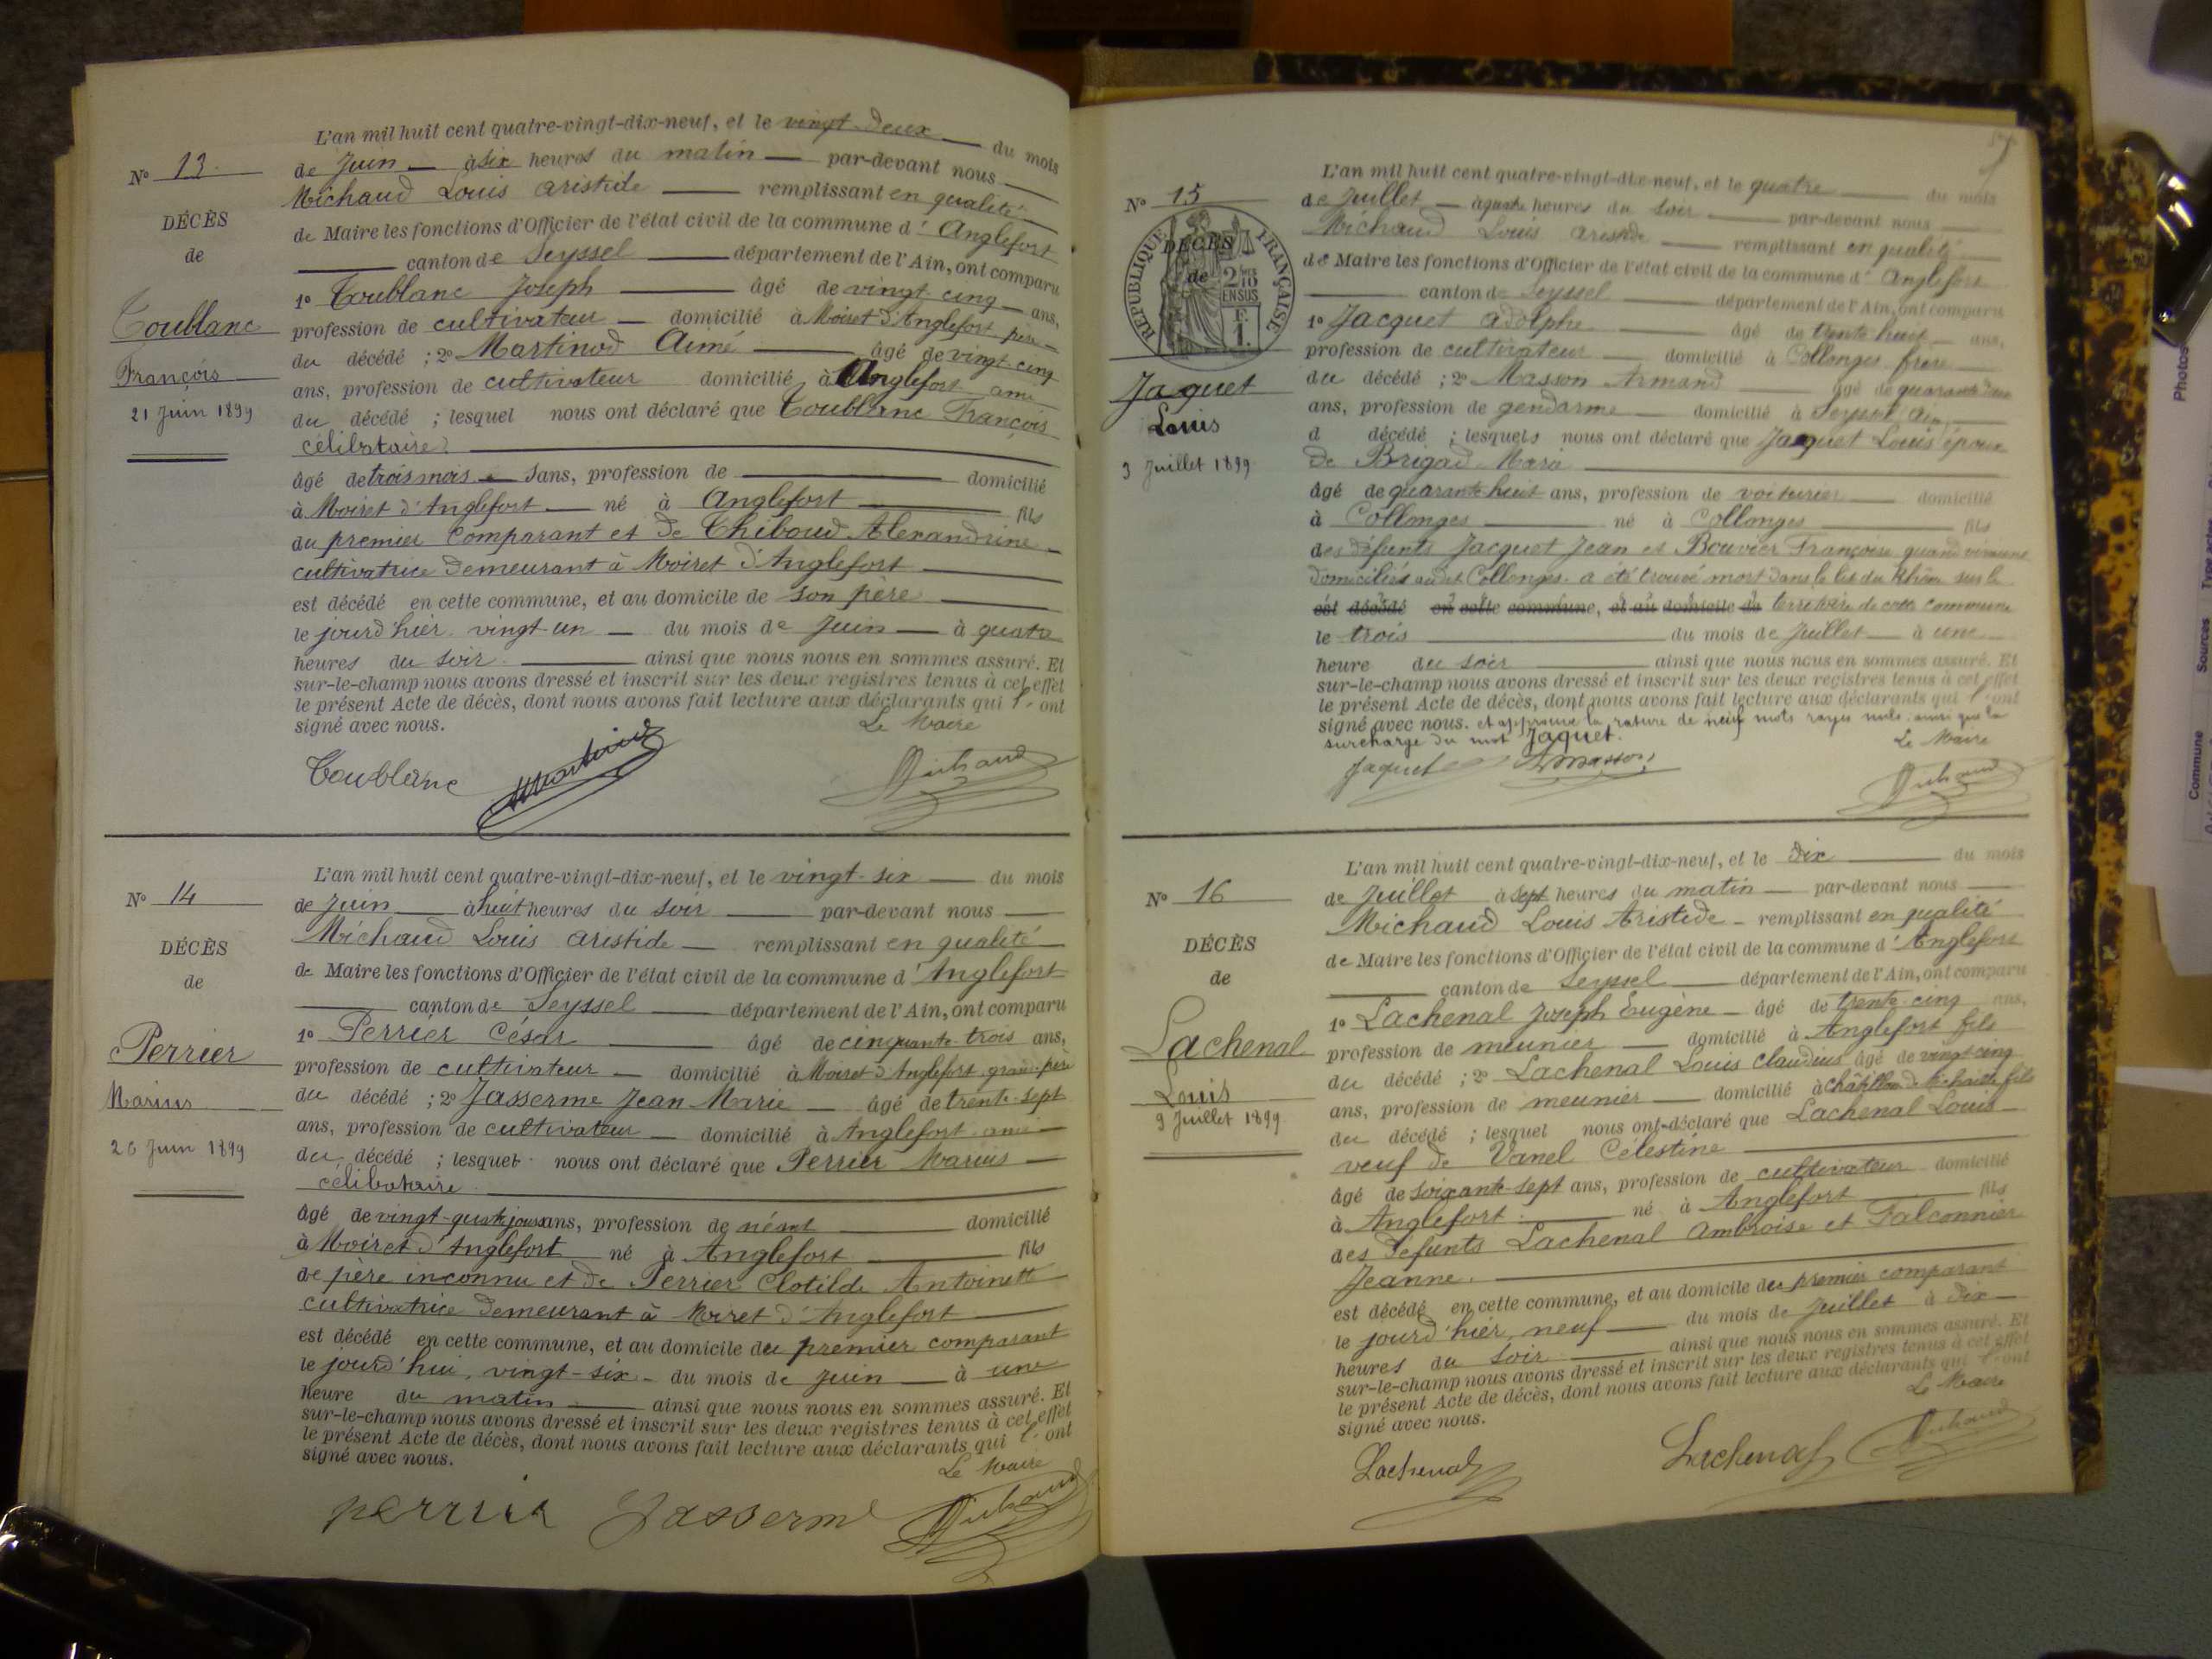 L'an mil huit cent quatre-vingt-dix-neuf, et le vingt-deux du mois
N° 13 de Juin à six heures du matin par-devant nous
Michaud Louis Aristide remplissant en qualité
de Maire les fonctions d'Officier de l'état civil de la commune d'Anglefort
DÉCÈS
de
canton de Seyssel département de l'Ain, ont comparu
1° Toublanc Joseph âgé de vingt cinq ans,
Toublanc
profession de cultivateur domicilié à Moiret d'Anglefort père
du décédé ; 2° Martinod Aimé âgé de vingt cinq
François
ans, profession de cultivateur domicilié à Anglefort ami
21 Juin 1899
du décédé ; lesquel nous ont déclaré que Toublanc François
célibataire
âgé de trois mois sans, profession de domicilié
à Moiret d'Anglefort né à Anglefort fils
du premier comparant et de Thiboud Alexandrine
cultivatrice demeurant à Moiret d'Anglefort
est décédé en cette commune, et au domicile de son père
le jourd'hier vingt-un du mois de Juin à quatre
heures du soir ainsi que nous nous en sommes assuré. Et
sur-le-champ nous avons dressé et inscrit sur les deux registres tenus à cet effet
le présent Acte de décès, dont nous avons fait lecture aux déclarants qui l'ont
signé avec nous. Le Maire
Toublanc Martinod Michaud
L'an mil huit cent quatre-vingt-dix-neuf, et le vingt-six du mois
N° 14 de Juin à huit heures du soir par-devant nous
Michaud Louis Aristide remplissant en qualité
DÉCÈS
de
de Maire les fonctions d'Officier de l'état civil de la commune d'Anglefort
canton de Seyssel département de l'Ain, ont comparu
1° Perrier César âgé de cinquante-trois ans,
Perrier
profession de cultivateur domicilié à Moiret d'Anglefort grand-père
du décédé ; 2° Jasserme Jean Marie âgé de trente-sept
Marius
ans, profession de cultivateur domicilié à Anglefort ami
26 Juin 1899
du décédé ; lesquel nous ont déclaré que Perrier Marius
célibataire
âgé de vingt-quatre jours ans, profession de néant domicilié
à Moiret d'Anglefort né à Anglefort fils
de père inconnu et de Perrier Clotilde Antoinette
cultivatrice demeurant à Moiret d'Anglefort
est décédé en cette commune, et au domicile du premier comparant
le jourd'hui, vingt-six du mois de Juin à une
heure du matin ainsi que nous nous en sommes assuré. Et
sur-le-champ nous avons dressé et inscrit sur les deux registres tenus à cet effet
le présent Acte de décès, dont nous avons fait lecture aux déclarants qui l'ont
signé avec nous. Le Maire
perrier Jasserme Michaud
L'an mil huit cent quatre-vingt-dix-neuf, et le quatre du mois
N° 15 de Juillet à quatre heures du soir par-devant nous
Michaud Louis Aristide remplissant en qualité
RÉPUBLIQUE FRANÇAISE
2/10 EN SUS
F. 1.
DÉCÈS
de
de Maire les fonctions d'Officier de l'état civil de la commune d'Anglefort
canton de Seyssel département de l'Ain, ont comparu
1° Jacquet Adolphe âgé de trente huit ans,
profession de cultivateur domicilié à Collonges frère
Jaquet
du décédé ; 2° Masson Armand âgé de quarante deux
Louis
ans, profession de gendarme domicilié à Seyssel (Ain)
d décédé ; lesquels nous ont déclaré que Jaquet Louis époux
3 Juillet 1899
de Brigad Marie
âgé de quarante huit ans, profession de voiturier domicilié
à Collonges né à Collonges fils
des défunts Jacquet Jean et Bouvier Françoise quand vivaient
domiciliés audit Collonges. a été trouvé mort dans le lit du Rhône sur le
est décédé en cette commune, et au domicile de territoire de cette commune
le trois du mois de Juillet à une
heure du soir ainsi que nous nous en sommes assuré. Et
sur-le-champ nous avons dressé et inscrit sur les deux registres tenus à cet effet
le présent Acte de décès, dont nous avons fait lecture aux déclarants qui l'ont
signé avec nous. et approuve la rature de neuf mots rayés nuls ainsi que la
surcharge du mot Jaquet. Le Maire
Jaquet Masson Michaud
L'an mil huit cent quatre-vingt-dix-neuf, et le dix du mois
N° 16 de Juillet à sept heures du matin par-devant nous
Michaud Louis Aristide remplissant en qualité
DÉCÈS
de
de Maire les fonctions d'Officier de l'état civil de la commune d'Anglefort
canton de Seyssel département de l'Ain, ont comparu
1° Lachenal Joseph Eugène âgé de trente-cinq ans,
Lachenal
profession de meunier domicilié à Anglefort fils
du décédé ; 2° Lachenal Louis Claudius âgé de vingt cinq
Louis
ans, profession de meunier domicilié à Châtillon de Michaille fils
9 Juillet 1899
du décédé ; lesquel nous ont déclaré que Lachenal Louis
veuf de Vanel Célestine
âgé de soixante-sept ans, profession de cultivateur domicilié
à Anglefort né à Anglefort fils
des défunts Lachenal Ambroise et Falconnier
Jeanne.
est décédé en cette commune, et au domicile du premier comparant
le jourd'hier, neuf du mois de Juillet à dix
heures du soir ainsi que nous nous en sommes assuré. Et
sur-le-champ nous avons dressé et inscrit sur les deux registres tenus à cet effet
le présent Acte de décès, dont nous avons fait lecture aux déclarants qui l'ont
signé avec nous. Le Maire
Lachenal Lachenal Michaud
Photos
Type acte
Sources
Commune